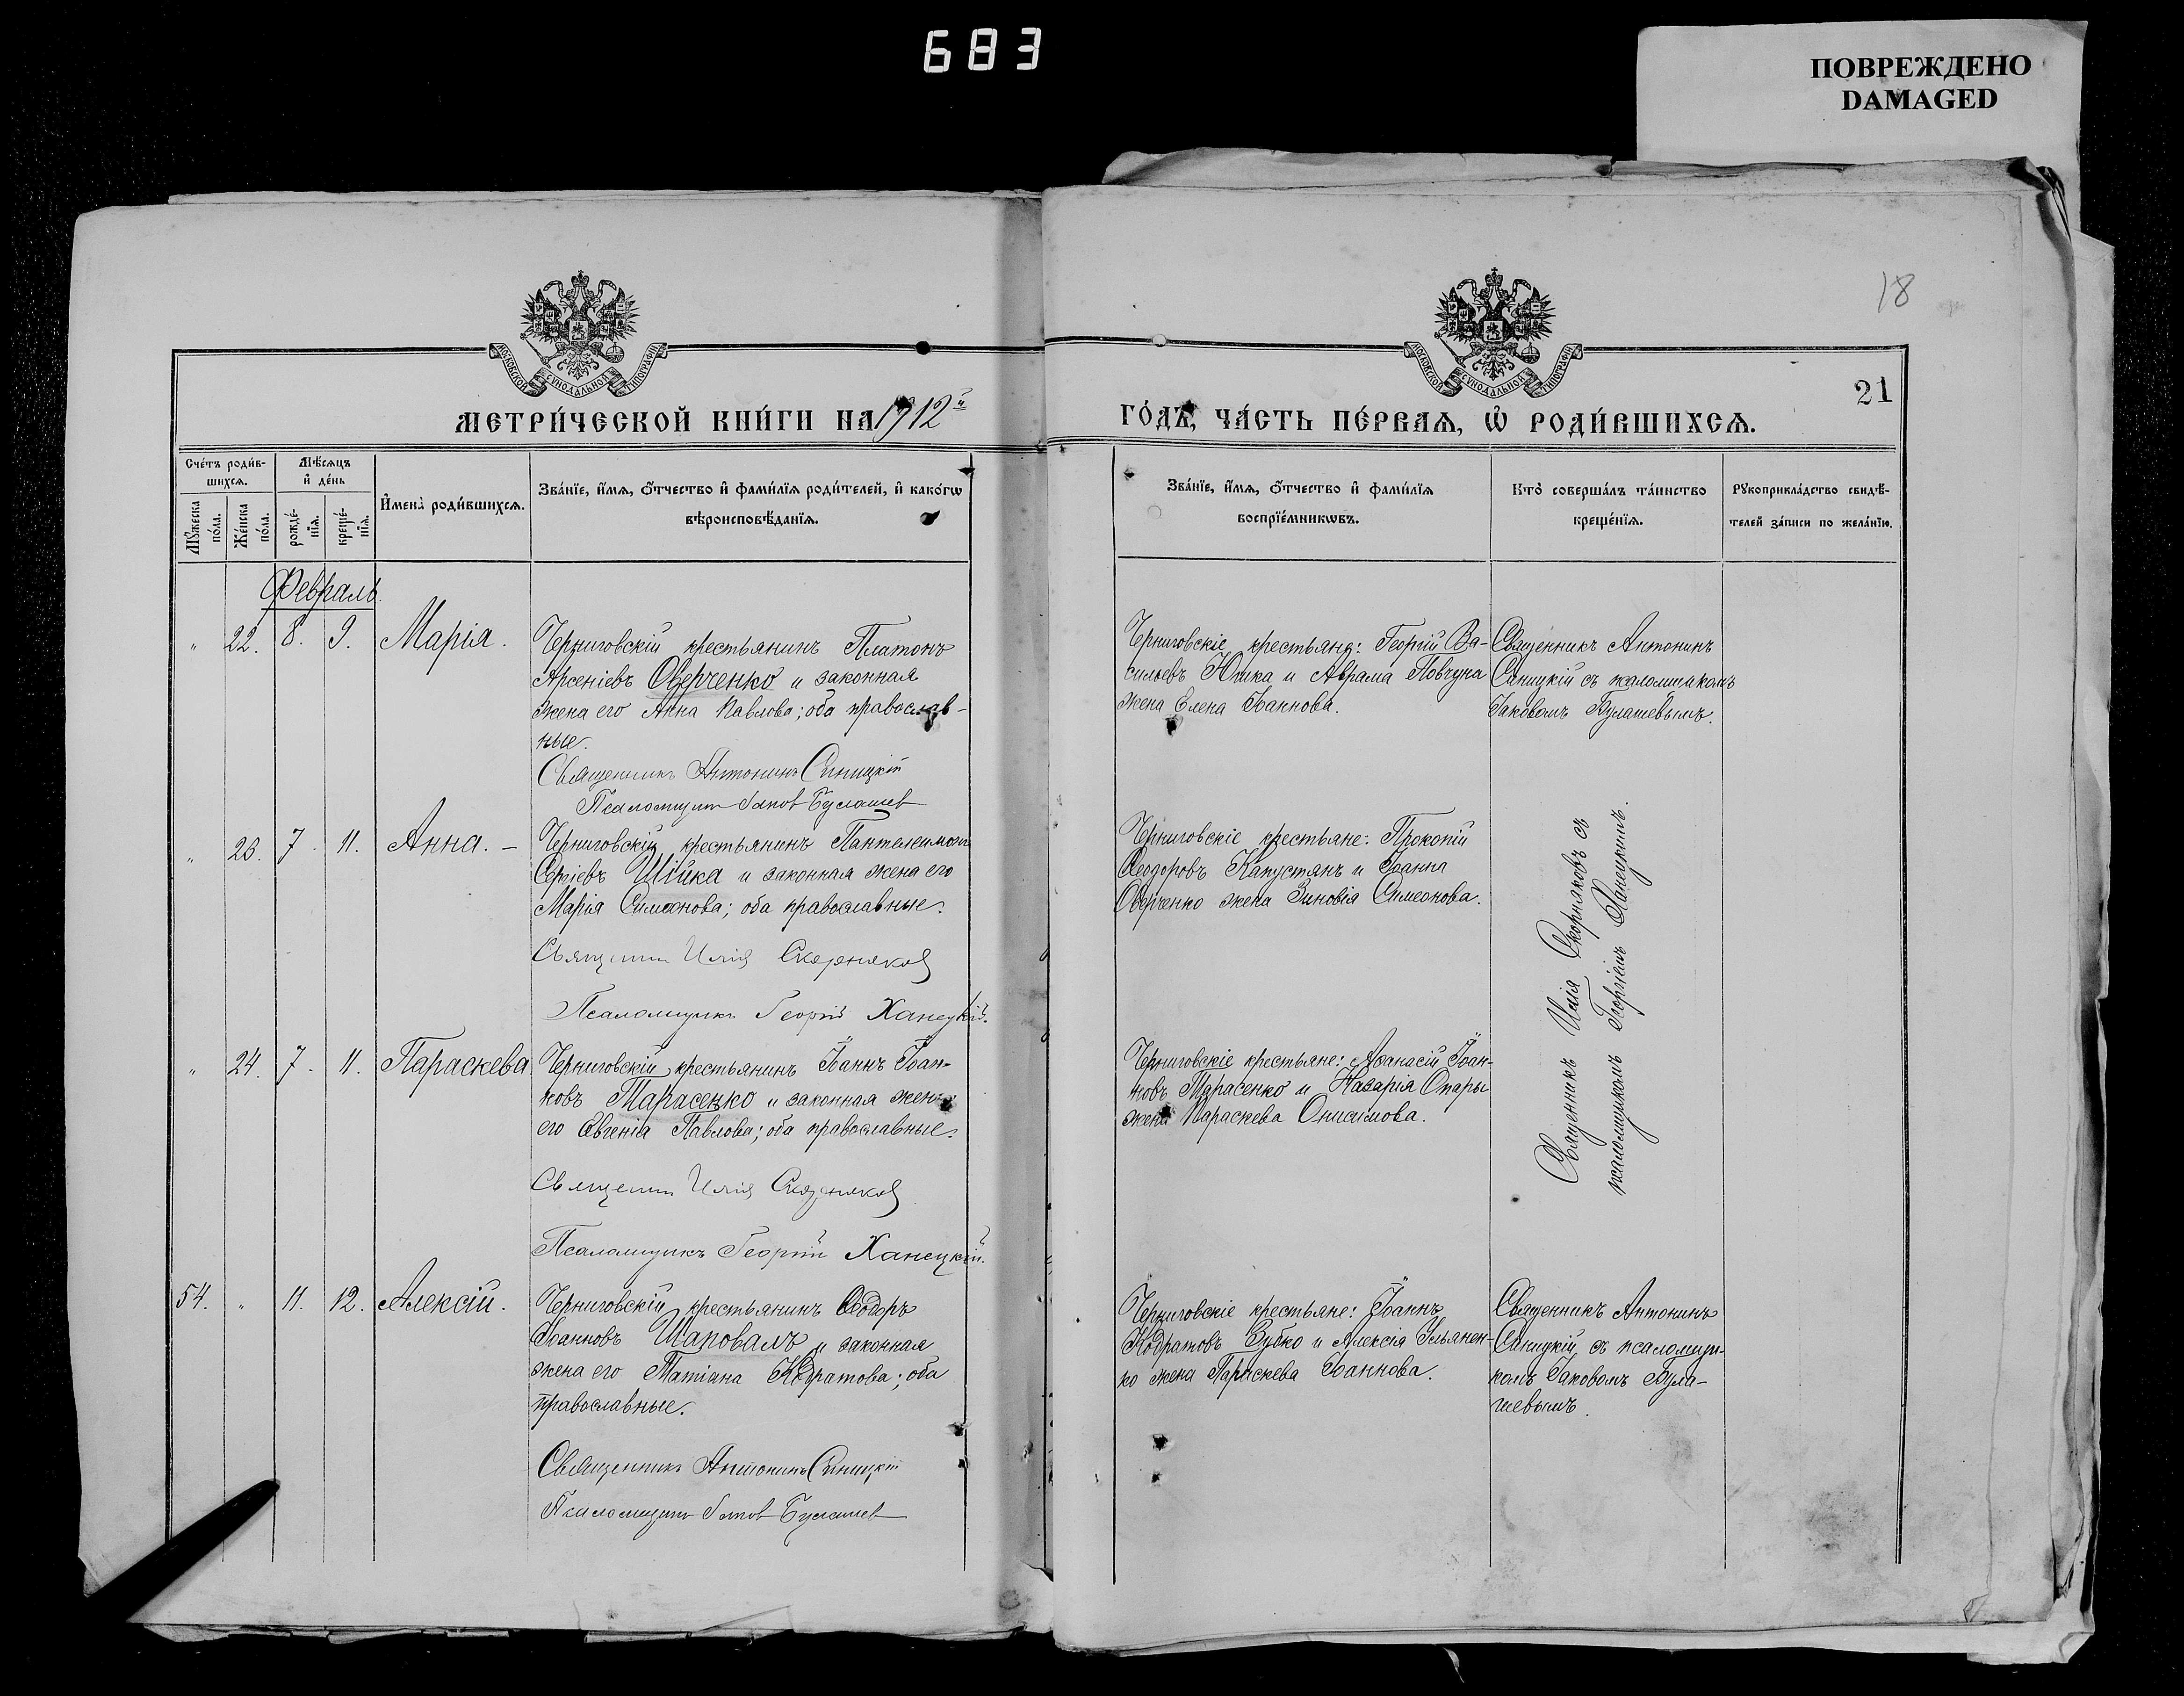 683
ПОВРЕЖДЕНО
DAMAGED
18
21
МОСКОВСКОЙ СУНОДАЛЬНОЙ ТИПОГРАФІИ
МОСКОВСКОЙ СУНОДАЛЬНОЙ ТИПОГРАФІИ
МЕТРИ́ЧЕСКОЙ КНИ́ГИ НА 1912й
ГО́ДЪ, ЧА́СТЬ ПЕ́РВАѦ, Ѽ РОДИ́ВШИХСѦ.
Сче́тъ роди́в-
шихсѧ.
Мꙋ́жеска
по́ла.
Же́нска
по́ла.
Мѣ́сѧцъ
и҆ де́нь
рожде́-
нїѧ.
креще́-
нїѧ.
И҆мена̀ роди́вшихсѧ.
Зва́нїе, и҆́мѧ, ѻ҆́тчество и҆ фами́лїѧ роди́телей, и҆ како́гѡ
вѣроисповѣ́данїѧ.
Зва́нїе, и҆́мѧ, ѻ҆́тчество и҆ фами́лїѧ
воспрїе́мникѡвъ.
Кто̀ соверша́лъ та́инство
креще́нїѧ.
Рꙋкоприкла́дство свидѣ́-
телей за́писи по жела́нїю.
Февраль.
" 22. 8. 9. Марія.
Черниговскій крестьянинъ Платонъ
Арсеніевъ Оверченко и законная
жена его Анна Павлова; оба православ-
ные.
Священникъ Антонинъ Синицкій
Псаломщик Іаков Булашев
Черниговскіе крестьяне: Георгій Ва-
сильевъ Юшка и Аврама Повгуна
жена Елена Іоаннова.
Священникъ Антонинъ
Синицкій съ псаломщикомъ
Іаковомъ Булашевымъ.
" 23. 7. 11. Анна. —
Черниговскій крестьянинъ Пантелеимонъ
Сергіевъ Шійка и законная жена его
Марія Симеонова; оба православные.
Священник Илія Скорняков
Псаломщикъ Георгій Ханецкій.
Черниговскіе крестьяне: Прокопій
Ѳеодоровъ Капустянъ и Іоанна
Оверченко жена Зиновія Симеонова.
Священникъ Илія Скорняковъ съ
псаломщикомъ Георгіемъ Ханецкимъ.
" 24. 7. 11. Параскева.
Черниговскій крестьянинъ Іоаннъ Іоан-
новъ Тарасенко и законная жена
его Евгенія Павлова; оба православные.
Священник Илія Скорняков
Псаломщикъ Георгій Ханецкій.
Черниговскіе крестьяне: Аѳанасій Іоан-
новъ Тарасенко и Назарія Опары
жена Параскева Онисимова.
54. " 11. 12. Алексій.
Черниговскій крестьянинъ Ѳеодоръ
Іоанновъ Шаповалъ и законная
жена его Татіана Кодратова; оба
православные.
Священникъ Антонинъ Синицкій
Псаломщик Іаков Булашев
Черниговскіе крестьяне: Іоаннъ
Кодратовъ Зубко и Алексія Ульянен-
ко жена Параскева Іоаннова.
Священникъ Антонинъ
Синицкій, съ псаломщи-
комъ Іаковомъ Була-
шевымъ.